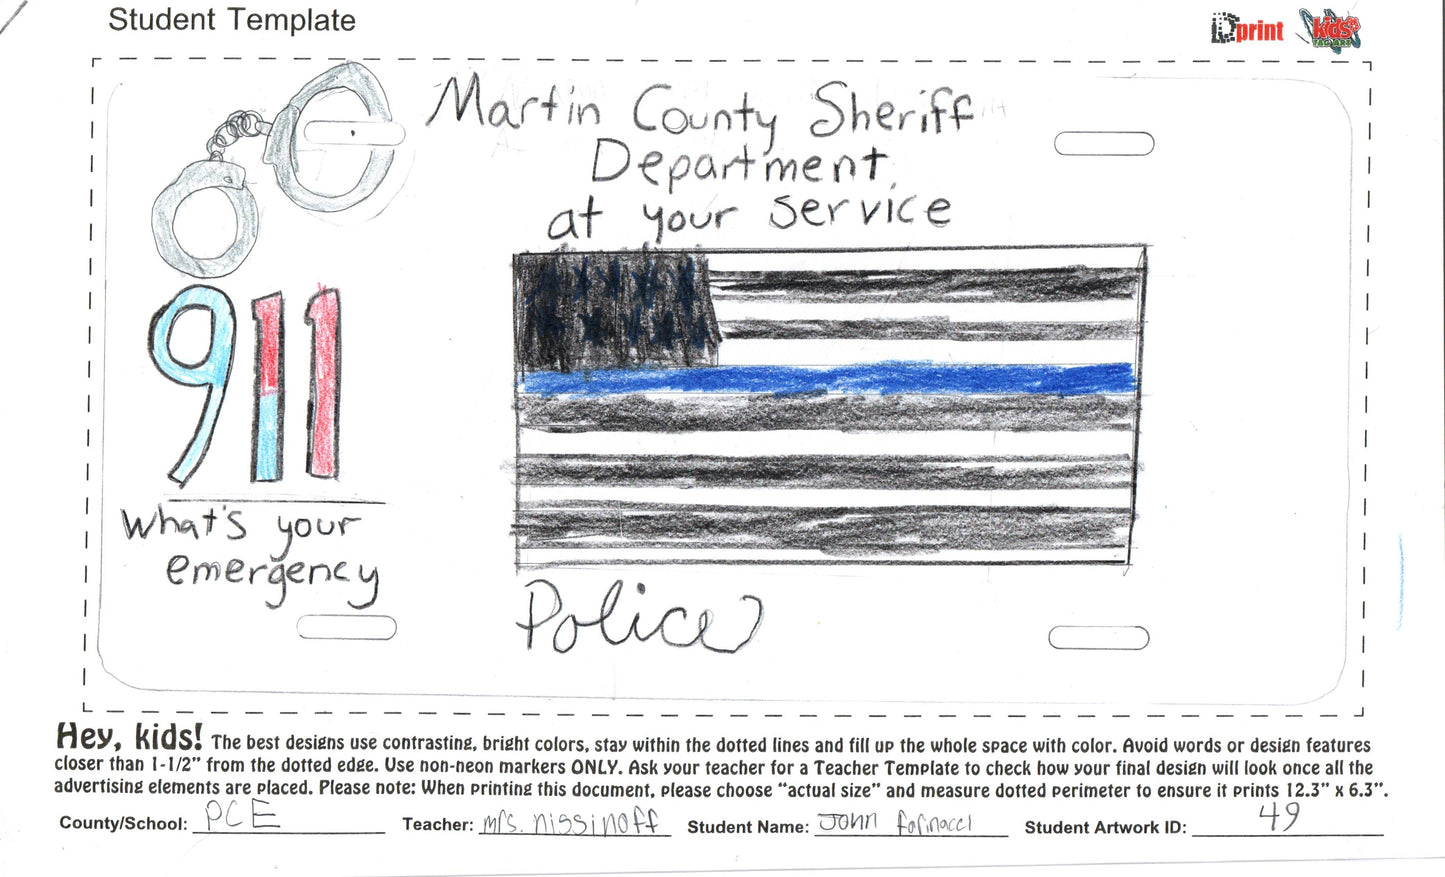 Student Template
iDprint
kids
TAG ART
Martin County Sheriff
Department
at your service
911
What's your
emergency
Police
Hey, kids! The best designs use contrasting, bright colors, stay within the dotted lines and fill up the whole space with color. Avoid words or design features
closer than 1-1/2” from the dotted edge. Use non-neon markers ONLY. Ask your teacher for a Teacher Template to check how your final design will look once all the
advertising elements are placed. Please note: When printing this document, please choose “actual size” and measure dotted perimeter to ensure it prints 12.3” x 6.3”.
County/School: PCE Teacher: mrs. nissinoff Student Name: John farinacci Student Artwork ID: 49